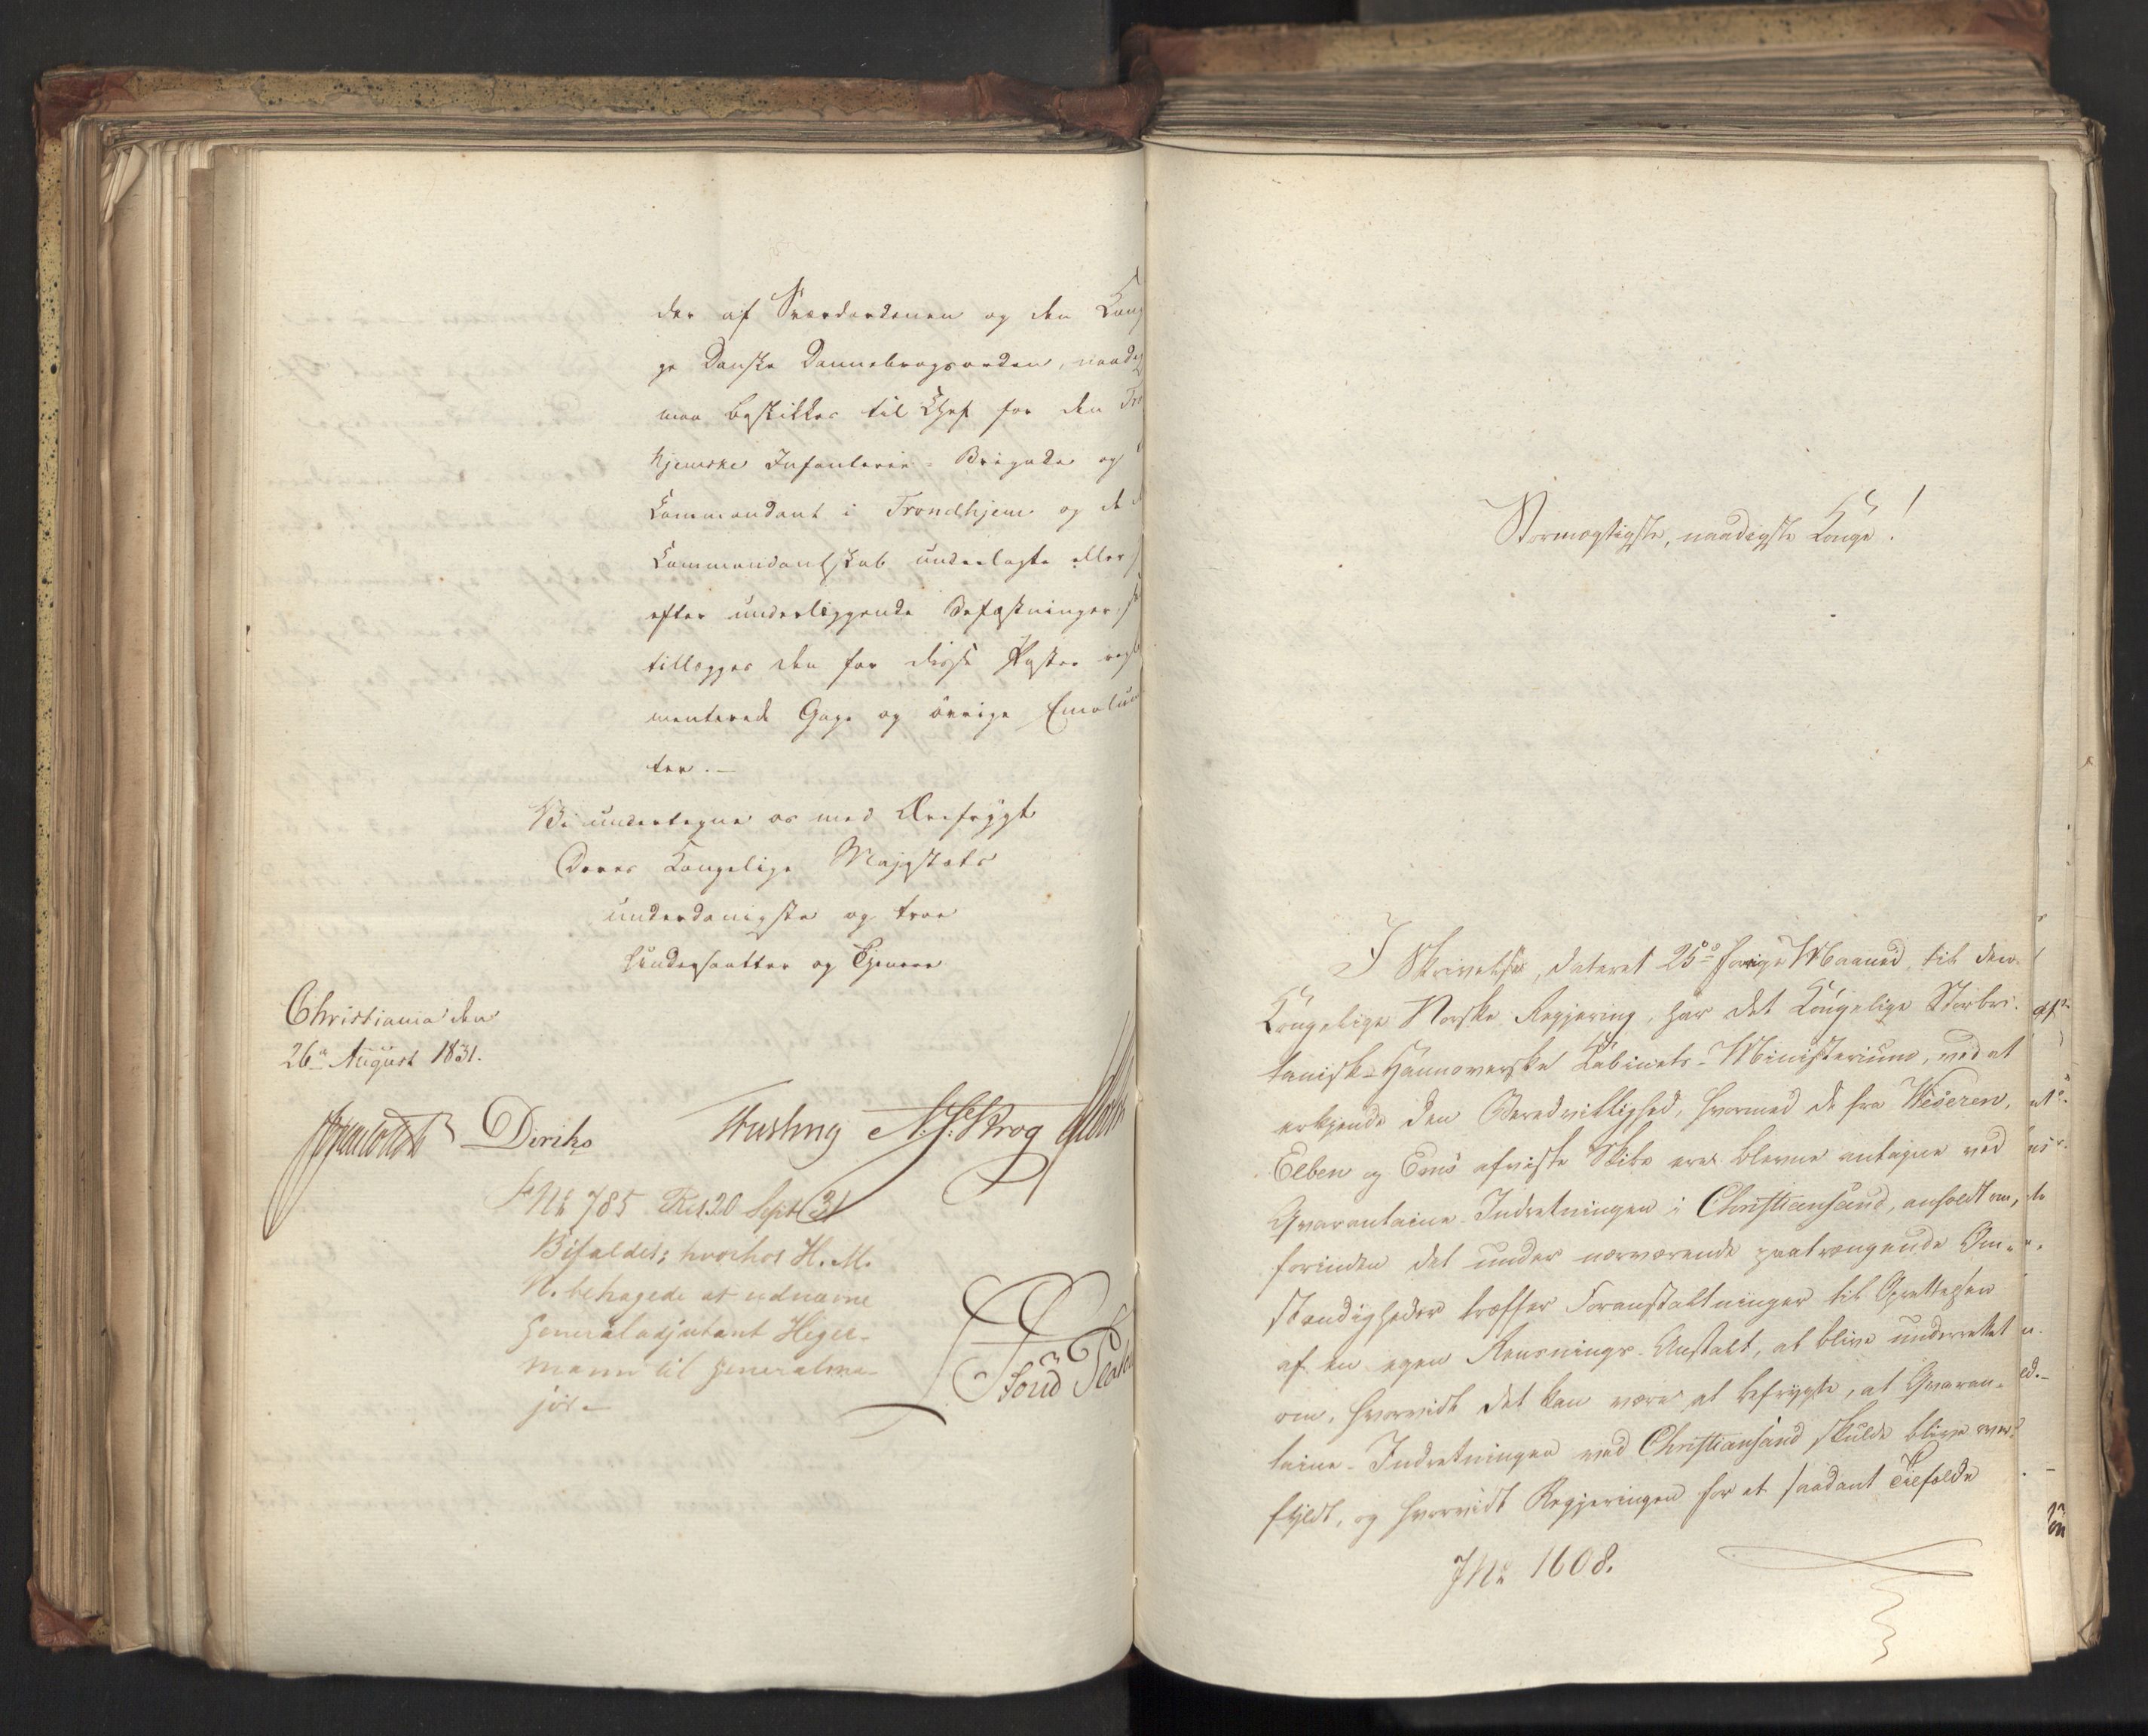 der af Sværdordenen og den Kong
ge Danske Dannebrogsorden, naadig
maa beskikkes til Chef for den Tro
hjemske Infanterie-Brigade og
Commandant i Trondhjem og de
Commandantskab underlagte eller
efter underliggende Befæstninger,
tillægges den for disse Poster regle
menterede Gage og øvrige Emolum
ter.-
Vi undertegne os med Ærefrygt
Deres Kongelige Majestæts
underdanigste og troe
Undersaatter og Tjenere
Christiania den
26de August 1831.
Diriks N. J. Krog
F No 785 Res. 20 Sept 31
Bifaldet; hvorhos H. M.
N. behagede at udnævne
Generaladjutant Heger-
mann til Generalma-
jor.-
Stormægtigste, naadigste Konge!
I Skrivelse, dateret 25de forrige Maaned, til den
Kongelige Norske Regjering, har det Kongelige Storbri-
tanisk-Hannoverske Cabinets-Ministerium, ved at
erkjende den Beredvillighed, hvormed de fra Weseren,
Elben og Ems afviste Skibe ere blevne antagne ved
Qvarantaine-Indretningen i Christiansand, anholdt om,
forinden det under nærværende paatrængende Om-
stændigheder træffer Foranstaltninger til Oprettelsen
af en egen Rensnings-Anstalt, at blive underrettet
om, hvorvidt det kan være at befrygte, at Qvaran-
taine-Indretningen ved Christiansand skulde blive over-
fyldt, og hvorvidt Regjeringen for et saadant Tilfælde
J No 1608.